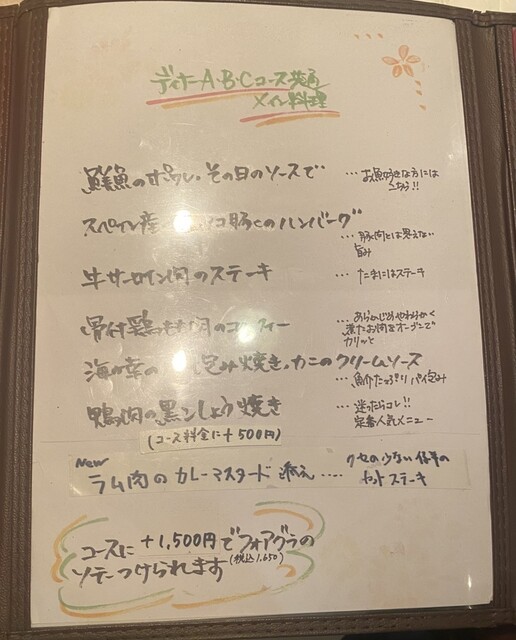 ディナーA・B・Cコース共通
メイン料理
鮮魚のポワレ、その日のソースで …お魚好きな方には
こちら!!
スペイン産 豚のハンバーグ …豚肉とは思えない
旨み
牛サーロイン肉のステーキ …たまにはステーキ
骨付鶏もも肉のコンフィー …あらかじめやわらかく
煮たお肉をオーブンで
カリッと
海の幸の 包み焼き、カニのクリームソース
…魚介たっぷりパイ包み
鴨肉の黒こしょう焼き …迷ったらコレ!!
定番人気メニュー
(コース料金に+500円)
New
ラム肉のカレーマスタード添え …. クセの少ない仔羊の
ステーキ
コースに+1,500円でフォアグラの
(税込1,650)
ソテーつけられます